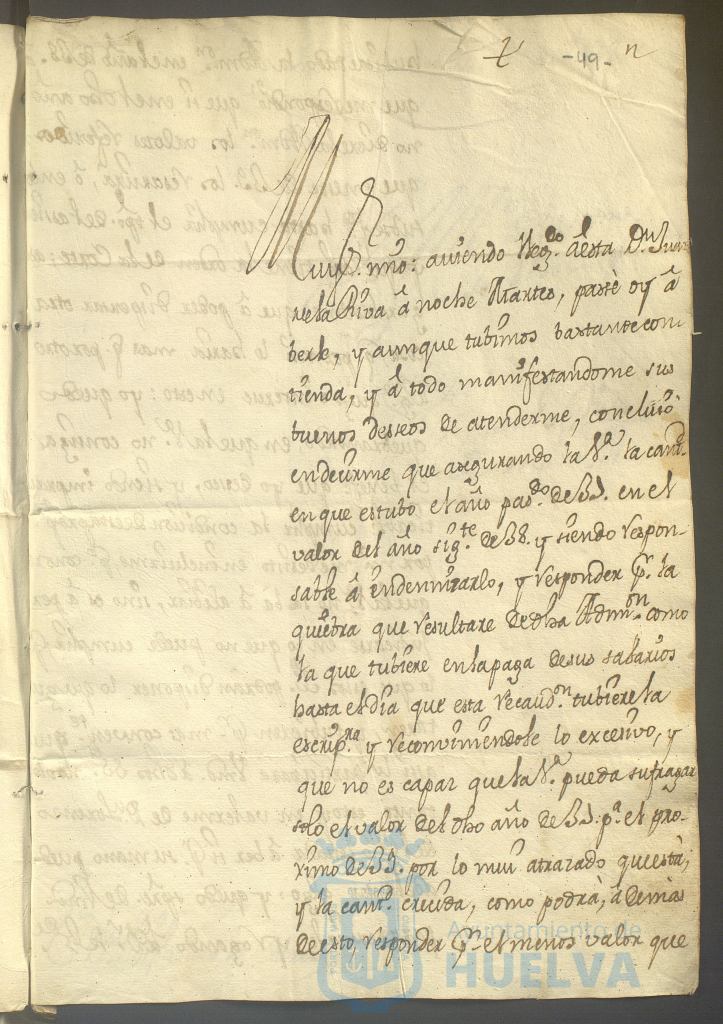 -49- n
Muy S. mío: aviendo lleg.do a esta D.n Juan
de la Riva â noche Martes, passè oy â
berle, y aunque tubimos bastante con-
tienda, y â todo manifestandome sus
buenos deseos de atenderme, concluiò
en decirme que asegurando la V.a la cant.d
en que estubo el año pas.do de 57. en el
valor del año sig.te de 58. y siendo respon-
sable â endemnizarlo, y responder p.r la
quiebra que resultare de dha Admin.on como
la que tubiere en la paga de sus salarios
hasta el dia que esta recaud.on tubiere la
escrip.ra y reconviniendole lo excesivo, y
que no es capaz que la V.a pueda sufragar
solo el valor del dho año de 57. p.a el pro-
ximo de 59. por lo mui atrazado que està,
y la cant.d crecida, como podrà, â demas
de esto, responder p.r el menos valor que
Ayuntamiento de
HUELVA